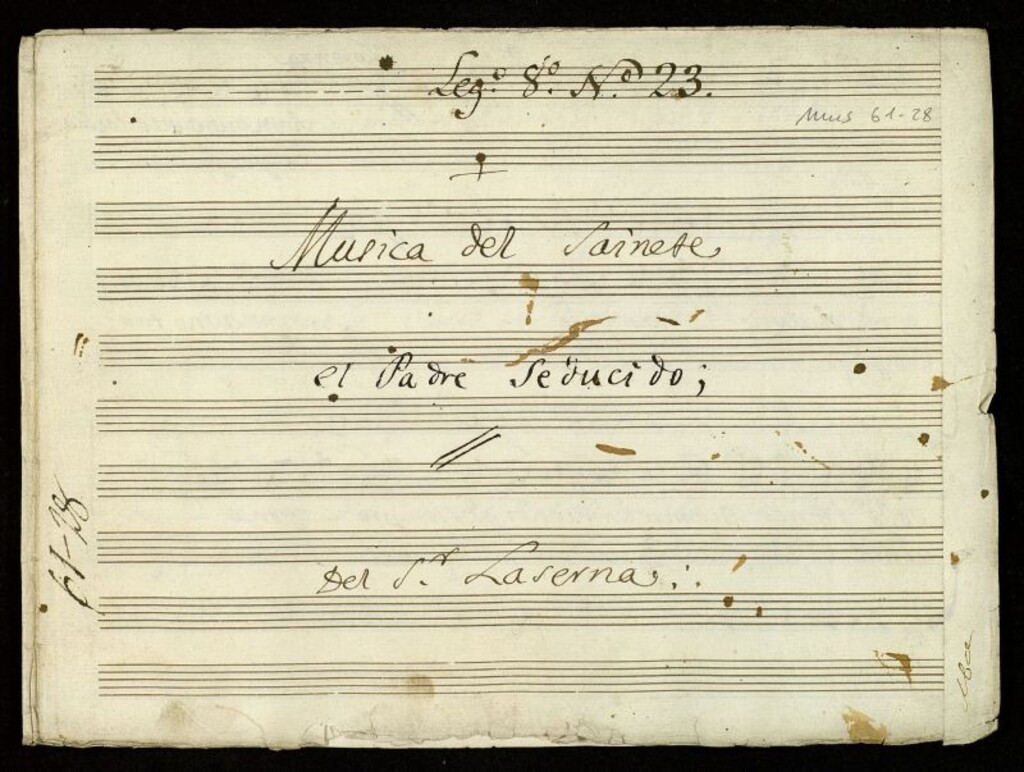 Leg.º 8.º N.º 23.
Mus 61-28
Musica del Sainete
el Padre Seducido;
Del S.r Laserna;
61-28